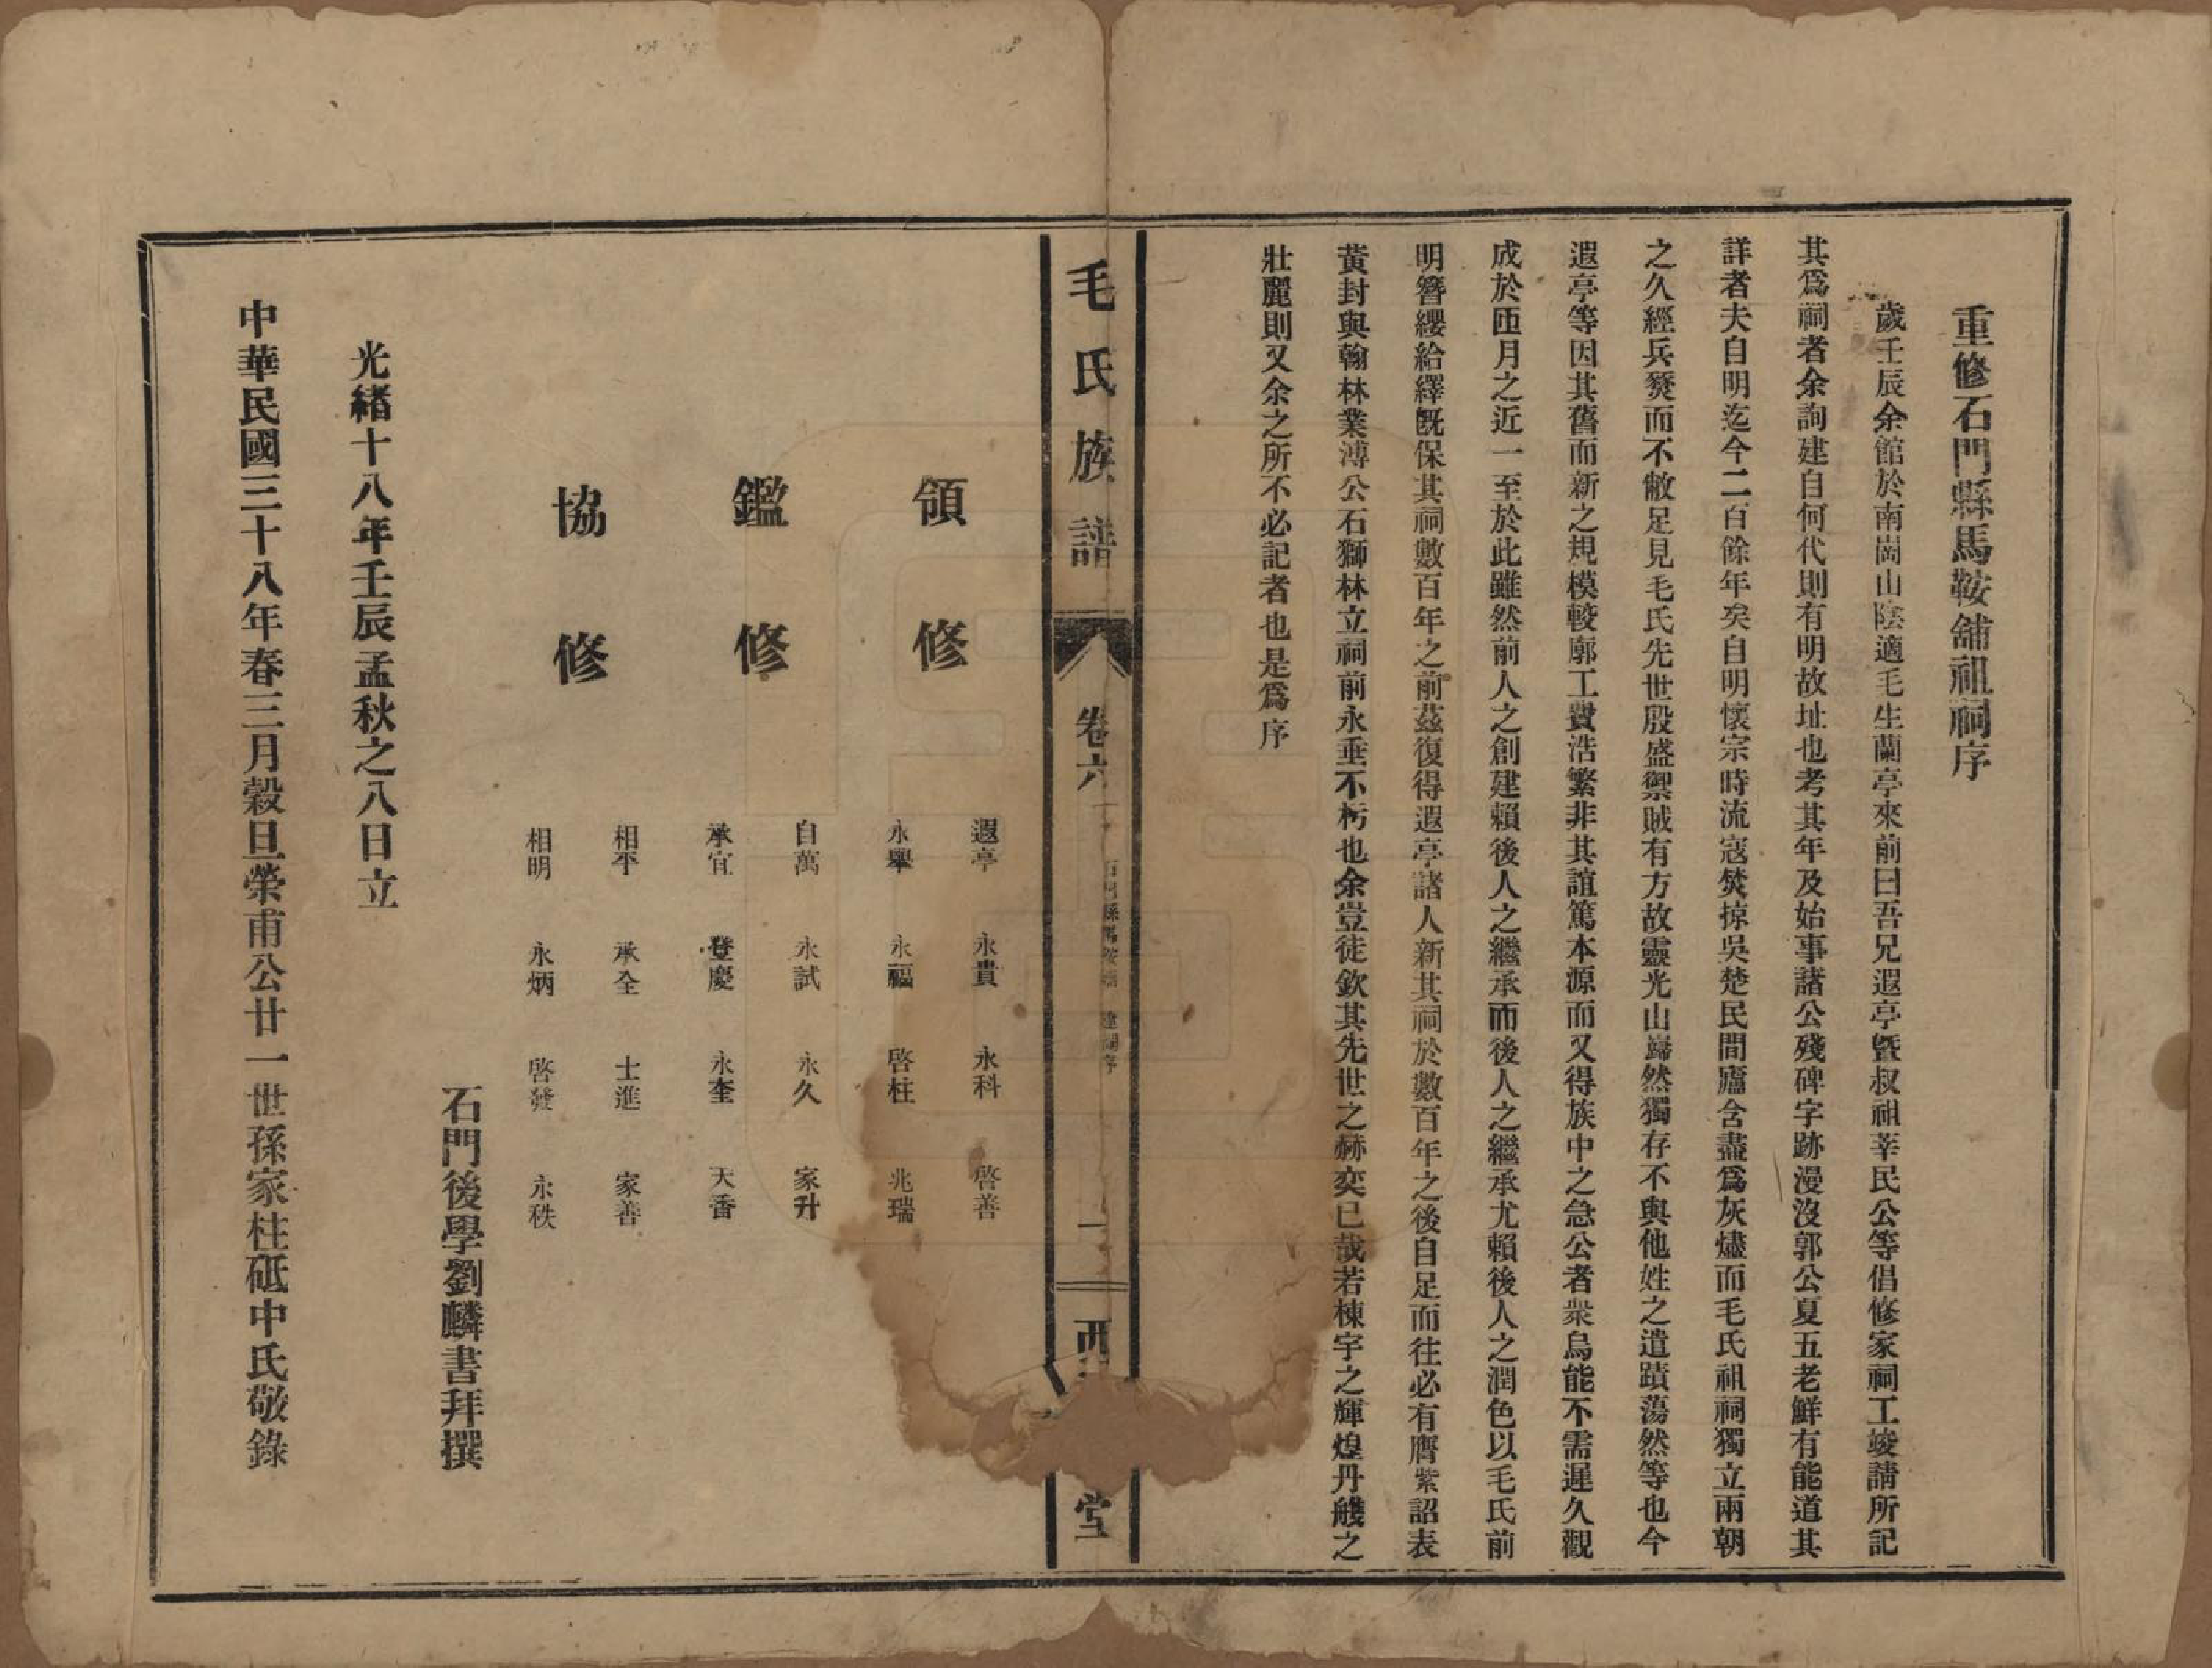 重修石門縣馬鞍舖祖祠序
歲壬辰余館於南崗山陰適毛生蘭亭來前曰吾兄遐亭曁叔祖莘民公等倡修家祠工竣請所記
其爲祠者余詢建自何代則有明故址也考其年及始事諸公殘碑字跡漫沒郭公夏五老鮮有能道其
詳者夫自明迄今二百餘年矣自明懷宗時流寇焚掠吳楚民間廬含盡爲灰燼而毛氏祖祠獨立兩朝
之久經兵燹而不敝足見毛氏先世殷盛禦賊有方故靈光山巋然獨存不與他姓之遺蹟蕩然等也今
遐亭等因其舊而新之規模較廓工費浩繁非其誼篤本源而又得族中之急公者衆烏能不需遲久觀
成於匝月之近一至於此雖然前人之創建賴後人之繼承而後人之繼承尤賴後人之潤色以毛氏前
明簪纓給繹旣保其祠數百年之前茲復得遐亭諸人新其祠於數百年之後自足而往必有膺紫詔表
黃封與翰林業溥公石獅林立祠前永垂不朽也余豈徒欽其先世之赫奕已哉若棟宇之輝煌丹艧之
壯麗則又余之所不必記者也是爲序
毛氏族譜
卷六
石門縣馬鞍舖 建祠序
一
西 堂
領修
遐亭 永貴 永科 啓善
永舉 永福 啓柱 兆瑞
鑑修
自萬 永試 永久 家升
承宜 登慶 永奎 天香
協修
相平 承全 士進 家善
相明 永炳 啓發 永秩
石門後學劉麟書拜撰
光緒十八年壬辰孟秋之八日立
中華民國三十八年春三月穀旦榮甫公廿一世孫家柱砥中氏敬錄